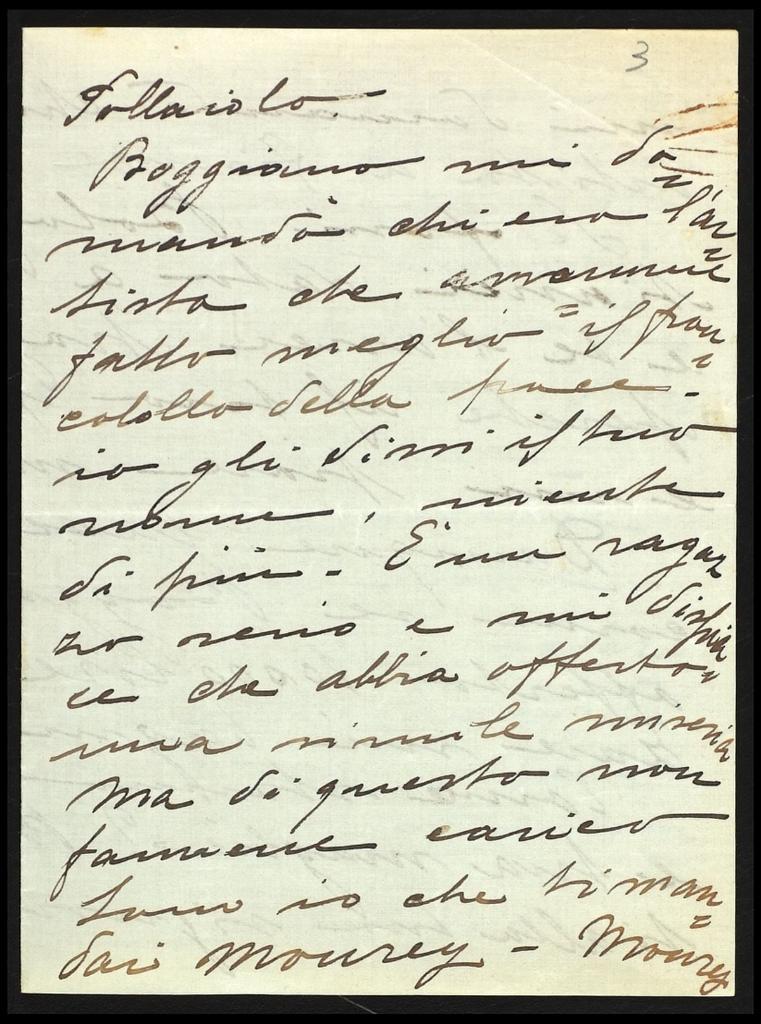 3
Follaiolo -
Boggiano mi do=
mandò chi era l'ar=
tista che avesse
fatto meglio il fran=
cobollo della pace -
io gli dissi il tuo
nome, niente
di più - È un ragaz
zo serio e mi dispia
ce che abbia offerto
una simile miseria
Ma di questo non
farmene carico
Sono io che ti man=
dai Mourey - Mourey